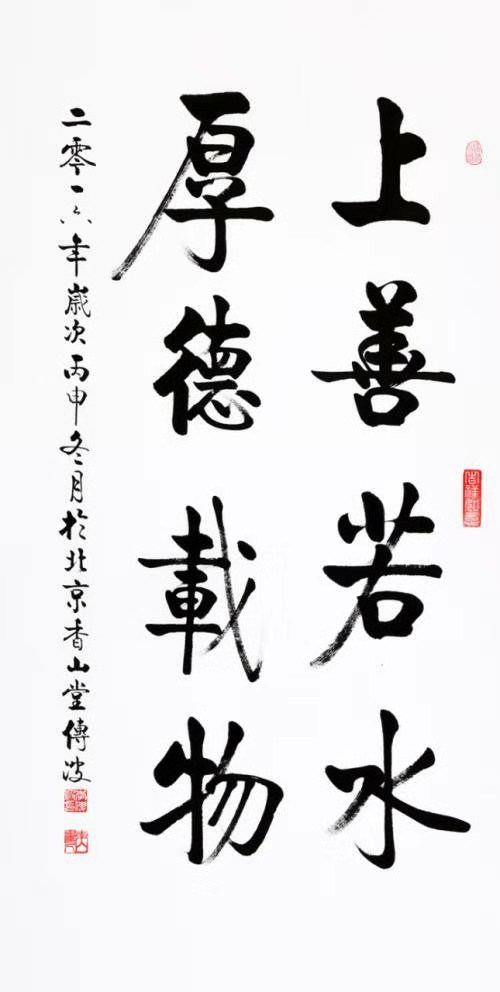 上善若水
厚德載物
二零一六年歲次丙申冬月於北京香山堂傳波